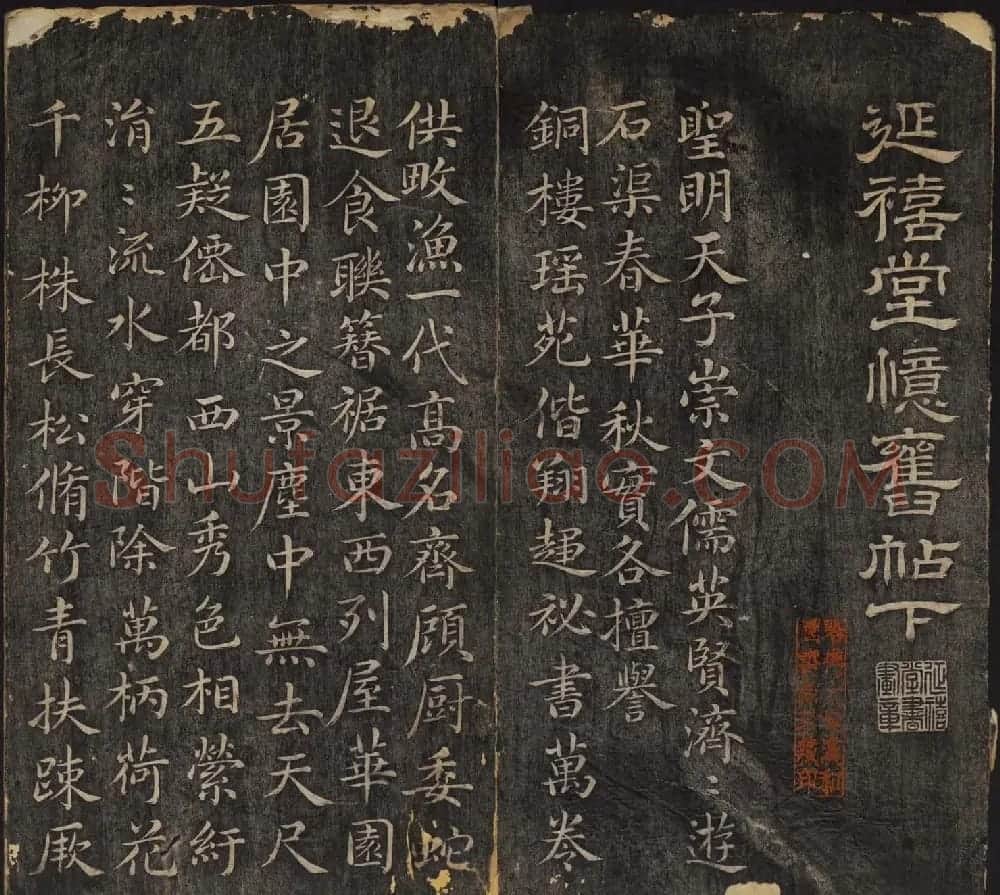 延禧堂憶舊帖下
延禧堂書畫章
聖明天子崇文儒英賢濟〻遊
石渠春華秋實各擅譽
銅樓瑶苑偕翔趨祕書萬卷
供畋漁一代髙名齊顧厨委蛇
退食聯簪裾東西列屋華園
居園中之景塵中無去天尺
五疑僊都西山秀色相縈紆
㳙〻流水穿階除萬柄荷花
千柳株長松脩竹青扶踈厥
Shufaziliao.COM